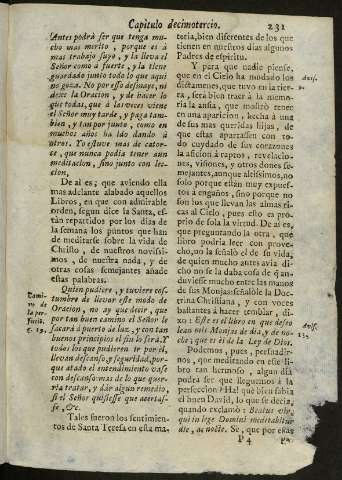 Capitulo decimotercio. 231
Antes podrà ser que tenga mu-
cho mas merito, porque es à
mas trabajo suyo, y la lleva el
Señor como à fuerte, y la tiene
guardado junto todo lo que aqui
no goza. No por esso desmaye, ni
dexe la Oracion, y de hacer lo
que todas, que à las veces viene
el Señor muy tarde, y paga tam-
bien, y tan por junto, como en
muchos años ha ido dando à
otros. Yo estuve mas de cator-
ce, que nunca podia tener aun
meditacion, sino junto con lec-
cion,
De aì es; que aviendo ella
mas adelante alabado aquellos
Libros, en que con admirable
orden, segun dice la Santa, es-
tàn repartidos por los dias de
la semana los puntos que han
de meditarse sobre la vida de
Christo, de nuestros novissi-
mos, de nuestra nada, y de
otras cosas semejantes añade
estas palabras.
Cami-
no de
la per-
fecció.
c. 19.
Quien pudiere, y tuviere cos-
tumbre de llevar este modo de
Oracion, no ay que decir, que
por tan buen camino el Señor le
sacarà à puerto de luz, y con tan
buenos principios el fin lo serà. Y
todos los que pudieren ir por èl,
llevan descanso, y seguridad, por-
que atado el entendimiento vase
con descanso: mas de lo que quer-
ria tratar, y dar algun remedio,
si el Señor quisiesse que acertas-
se, &c.
Tales fueron los sentimien-
tos de Santa Teresa en esta ma-
teria, bien diferentes de los que
tienen en nuestros dias algunos
Padres de espiritu.
Y para que nadie piense,
que en el Cielo ha mudado los
Avis.
dictamenes, que tuvo en la tier-
ra, serà bien traer à la memo-
ria la ansia, que mostrò tener
en una aparicion, hecha à una
de sus mas queridas hijas, de
que estas apartassen con to-
do cuydado de sus corazones
la aficion à raptos, revelacio-
nes, visiones, y otros dones se-
mejantes, aunque altissimos, no
solo porque estàn muy expues-
tos à engaños, sino porque no
son los que llevan las almas ri-
cas al Cielo, pues esto es pro-
prio de sola la virtud. De aì es,
que preguntando la otra, què
libro podria leer con prove-
cho, no la señalò el de su vida,
de quien mucho antes avia di-
cho no se la daba cosa de q̃ an-
duviesse mucho entre las manos
de sus Monjas: señalòle la Doc-
trina Christiana, y con voces
bastantes à hacer temblar, di-
xo: Este es el libro en que deseo
Avis.
lean mis Monjas de dia, y de no-
che; que es el de la Ley de Dios.
Podemos, pues, persuadir-
nos, que meditando en este li-
bro tan hermoso, algun dia
podrà ser que lleguemos à la
perfeccion: Ha! què bien sabia
el buen David, lo que se decia,
quando exclamò: Beatus vir,
qui in lege Domini meditabitur
die, ac nocte. Sì, que por estas
P 4